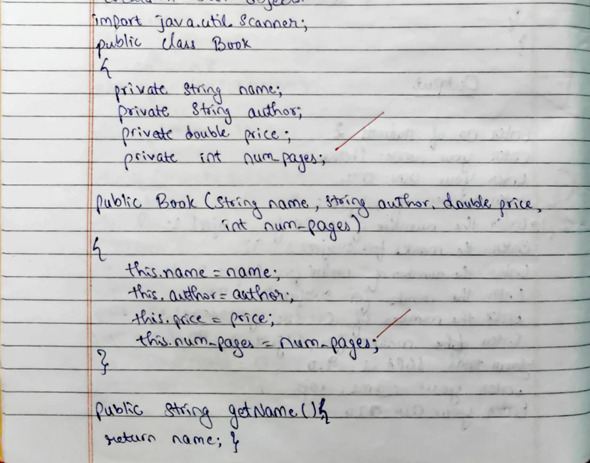 import java.util.Scanner;
public class Book
{
private String name;
private String author;
private double price;
private int num_pages;
public Book (String name, String author, double price,
int num-pages)
{
this.name = name;
this.author = author;
this.price = price;
this.num-pages = num-pages;
}
public String getName(){
return name; }